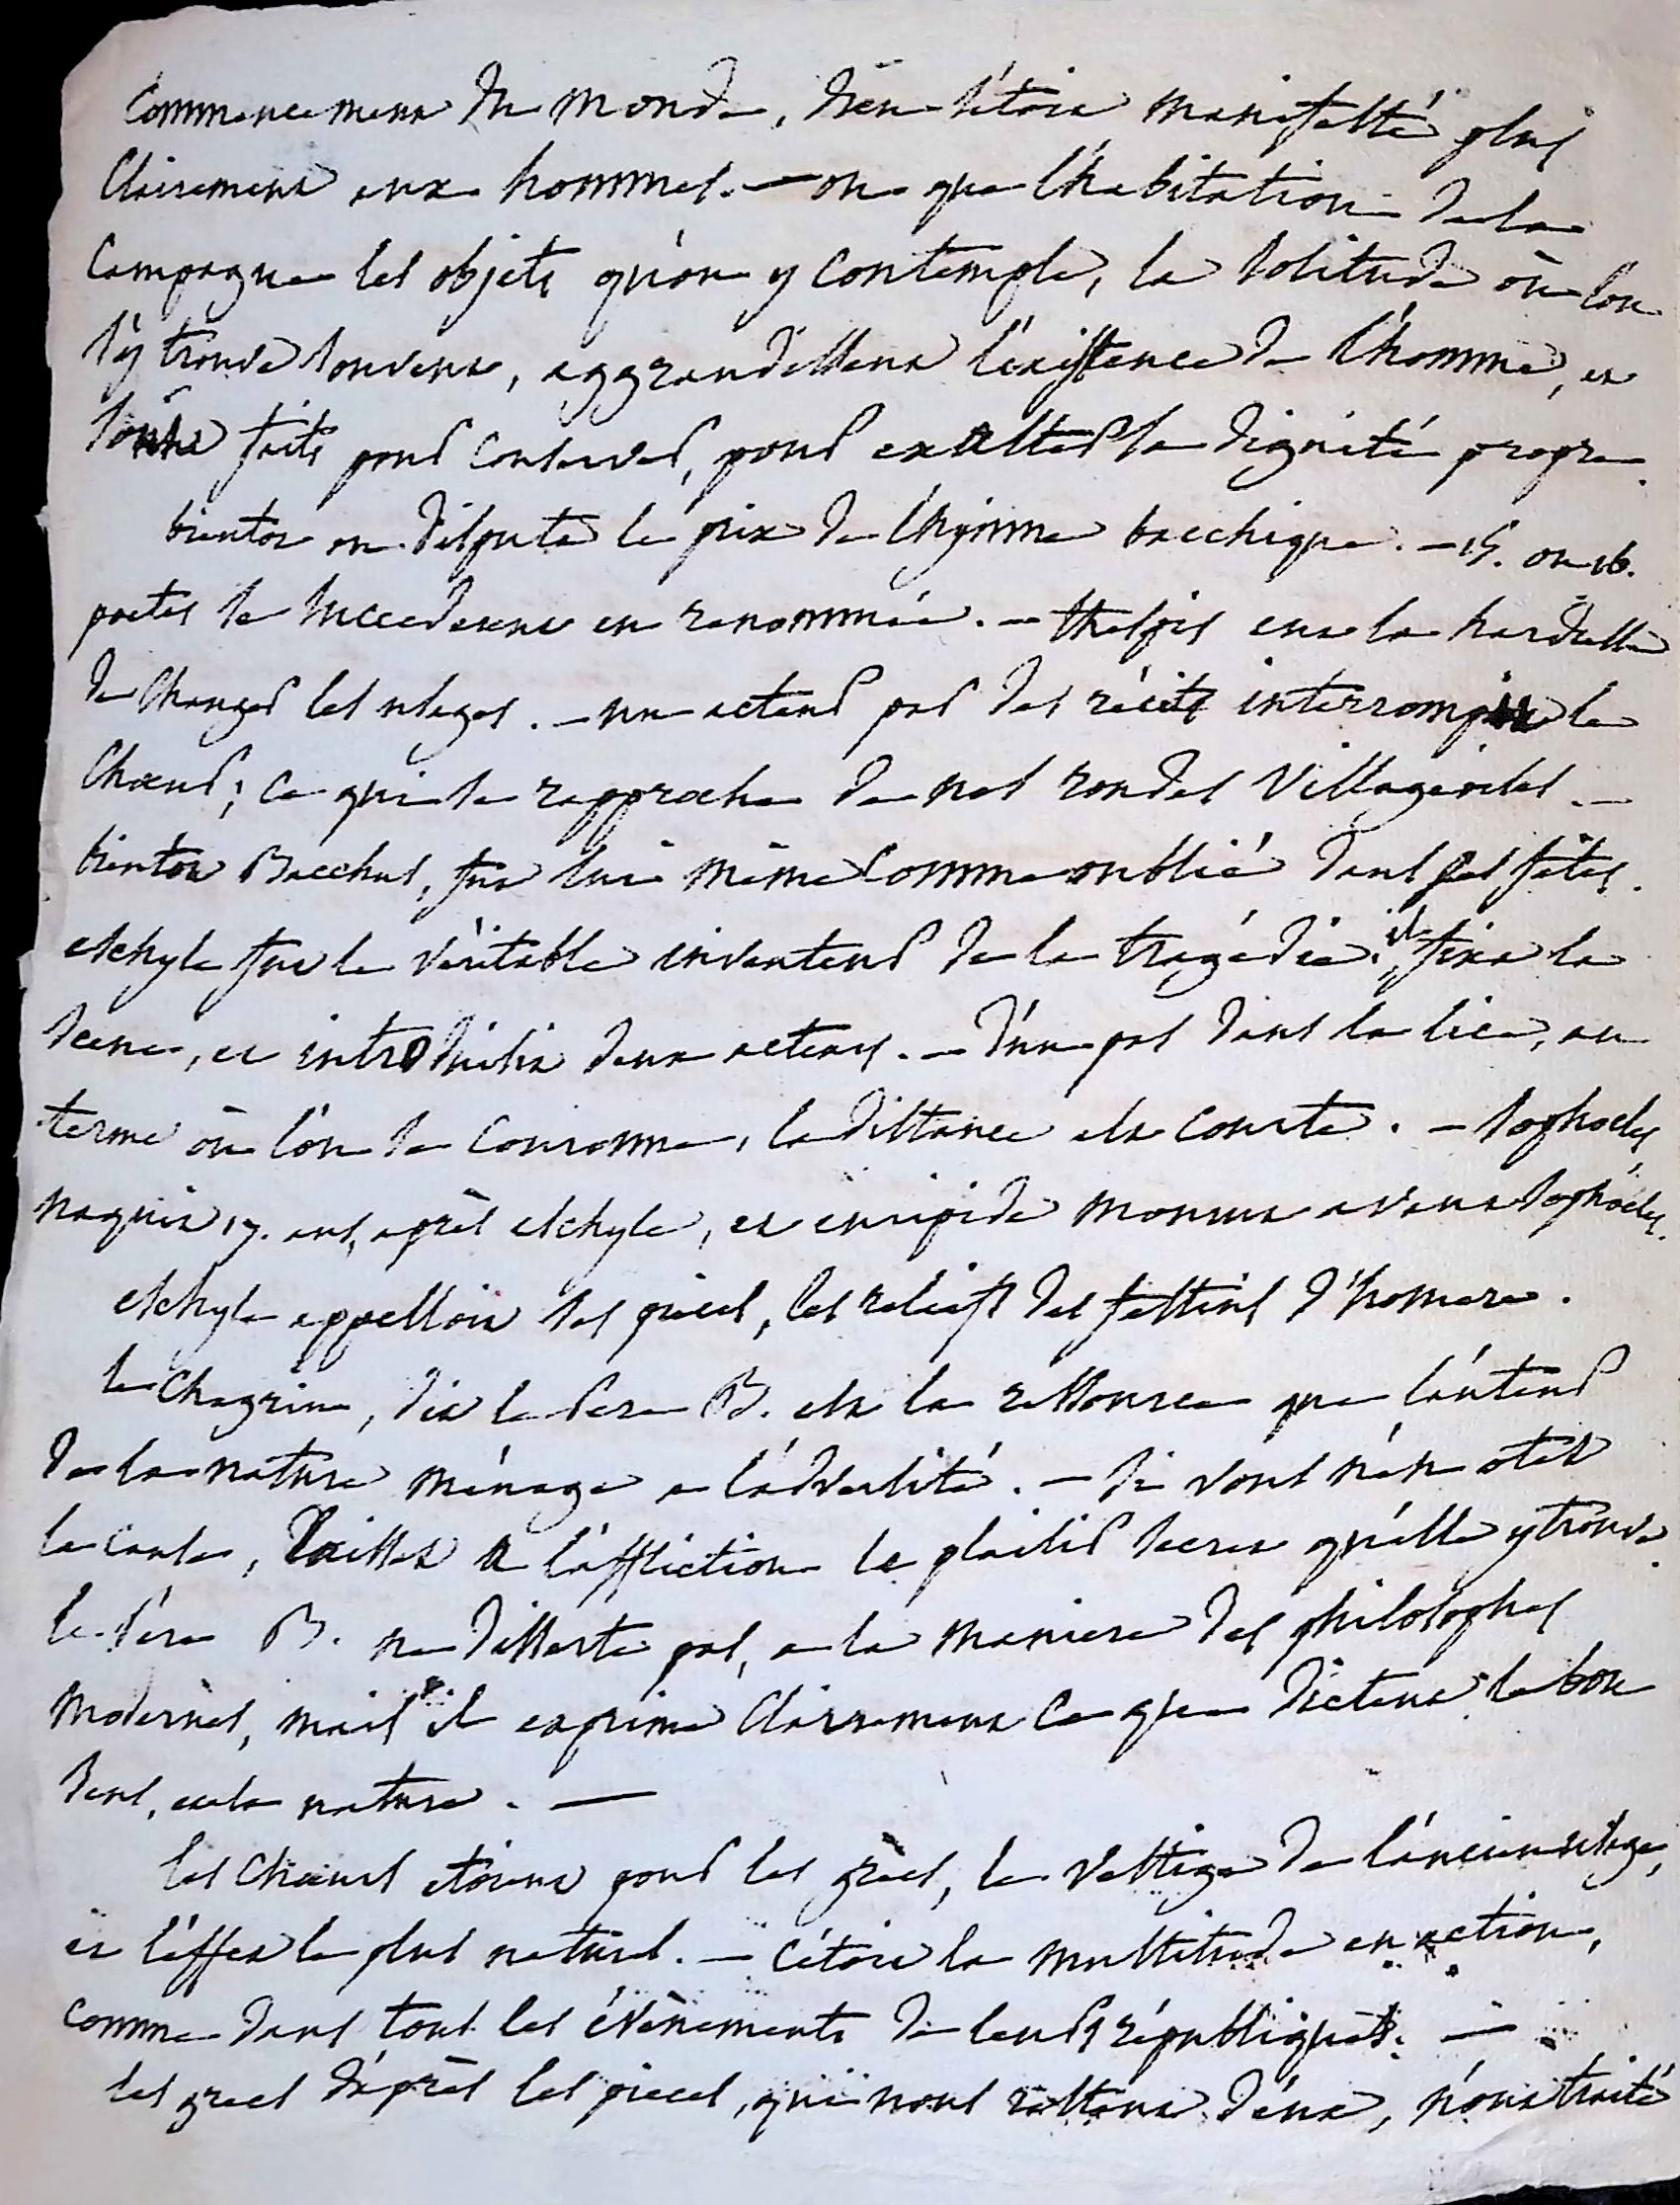 commencement du monde, Dieu s'étoit manifesté plus
clairement aux hommes. — ou que l'habitation de la
campagne les objets qu'on y contemple, la solitude où l'on
s'y trouve souvent, aggrandissent l'existence de l'homme, et
sont faits pour conserver, pour exalter sa dignité propre.
bientot on disputa le prix de l'hymne bacchique. — 15. ou 16.
poetes se succederent en renommée. — thespis eut la hardiesse
de changer les usages. — un acteur par des récits interrompit le
chœur ; ce qui se rapproche de nos rondes villageoises. —
bientot Bacchus, fut lui même comme oublié dans ses fêtes.
eschyle fut le véritable inventeur de la tragédie. il fixa la
scene, et introduisit deux acteurs. — d'un pas dans la lice, au
terme où l'on se couronne, la distance est courte. — sophocles,
naquit 17. ans, après eschyle, et euripide mourut avant sophocles.
eschyle appelloit ses pieces, les reliefs des festins d'homere.
le chagrin, dit le Pere B. est la ressource que l'auteur
de la nature ménage a l'adversité. — si vous n'en otez
la cause, laissez a l'affliction le plaisir secret qu'elle y trouve.
le Pere B. ne disserte pas, a la maniere des philosophes
modernes, mais il exprime clairement ce que dictent le bon
sens, et la nature. —
les chœurs etoient pour les grecs, le vestige de l'ancien usage,
et l'effet le plus naturel. — c'étoit la multitude en action,
comme dans tous les évènements de leurs républiques. —
les grecs d'après les pieces, qui nous restent d'eux, n'ont traité